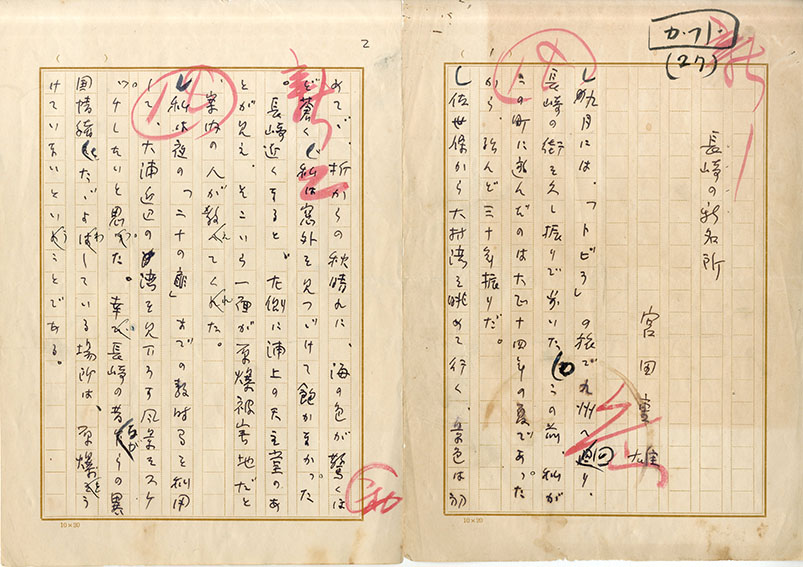 カット
(27)
長崎の新名所
宮田重雄
先月には、「トビラ」の旅で九州へ廻り、
長崎の街を久し振りで歩いた。この前私が
この町に遊んだのは大正十四年の夏であった
から、殆んど三十年振りだ。
佐世保から大村湾を眺めて行く、景色は初
2
めてで、折からの秋晴れに、海の色が驚くほ
ど蒼く、私は窓外を見つづけて飽かなかった。
長崎近くすると、左側に浦上の天主堂のあ
とが見え、そこいら一面が原爆被害地だと
案内の人が教えてくれた。
私は夜の「二十の扉」までの数時間を利用
して、大浦近辺の湾を見下ろす風景をスケ
ッチしたいと思った。幸い長崎の昔ながらの異
国情緒をただよわしている場所は、原爆をう
けていないということである。
10×20
10×20